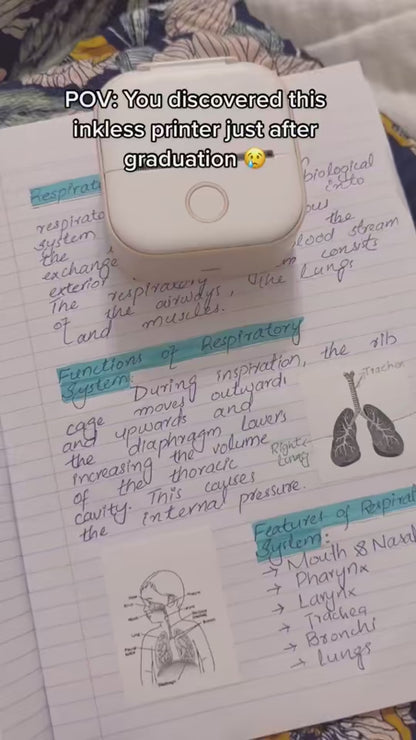 POV: You discovered this
inkless printer just after
graduation 😢
biological
into
respirato
system
the
the
exchange
blood stream
exterior
consists
The respiratory
of the airways, the Lungs
and muscles.
Functions of Respiratory
System: During inspiration, the rib
cage moves outward
and upwards and
the diaphragm lowers
increasing the volume
of the thoracic
cavity. This causes
the internal pressure.
Trachea
Right
Lung
Features of Respira
System:
→ Mouth & Nasal
→ Pharynx
→ Larynx
→ Trachea
→ Bronchi
→ Lungs